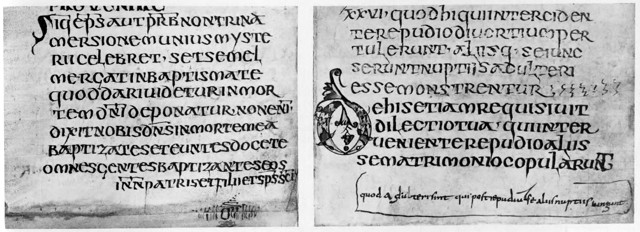 SIQEP̄SAUTP̄RB̄NONTRINA
MERSIONEMUNIUSMYSTE
RIICELEBRET·SETSEMEL
MERGATINBAPTISMATE
QUODDARIUIDETURINMOR
TEMDN̄IDEPONATUR·NONENI
DIXITNOBISDN̄SINMORTEMEA
BAPTIZATESETEUNTESDOCETE
OMNESGENTESBAPTIZANTESEOS
INN̄PATRISETFILIIETSPSSCI
XXVI·QUODHIQUIINTERCIDEN
TEREPUDIODIUORTIUMPER
TULERUNT·ALIISQ·SEIUNC
SERUNTNUPTIISADULTERI
ESSEMONSTRENTUR
DEHISETIAMREQUISIUIT
DILECTIOTUAQUIINTER
UENIENTEREPUDIOALIIS
SEMATRIMONIOCOPULARUNT
quod adulteri sint qui post repudiū se aliis nuptiis iungunt